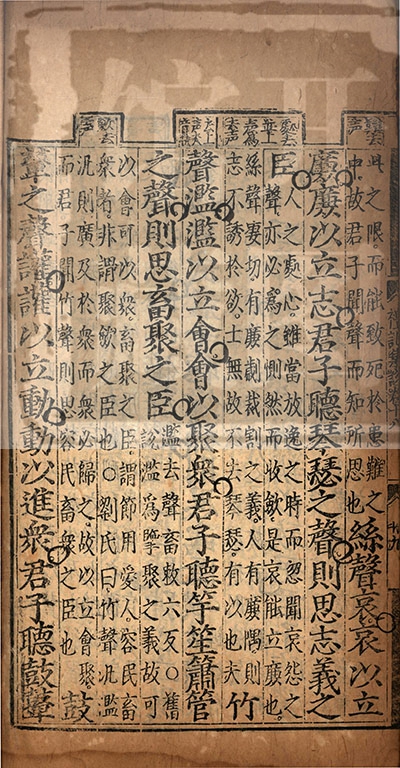 此之限而能致死於患難之
中故君子聞聲而知所思也
絲聲哀哀以立
廉廉以立志君子聽琴瑟之聲則思志義之
臣
人之處心雖當放逸之時而忽聞哀怨之
聲亦必為之惻然而收斂是哀能立廉也
絲聲凄切有廉劌裁割之義人有廉隅則
志不誘於欲士無故不去琴瑟有以也夫
竹
聲濫濫以立會會以聚衆君子聽竽笙簫管
之聲則思畜聚之臣
濫去聲畜敕六反○舊
說濫為擥聚之義故可
以會可以衆畜聚之臣謂節用愛人容民畜
衆者非謂聚斂之臣也○劉氏曰竹聲汎濫
汎則廣及於衆而衆必歸之故以立會聚
而君子聞竹聲則思容民畜衆之臣也
鼓
鼙之聲讙讙以立動動以進衆君子聽鼓鼙